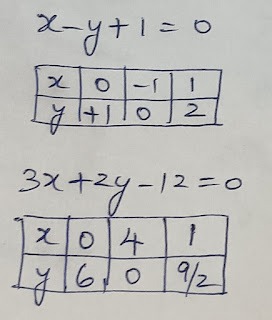 x-y+1=0
x 0 -1 1
y +1 0 2
3x+2y-12=0
x 0 4 1
y 6 0 9/2